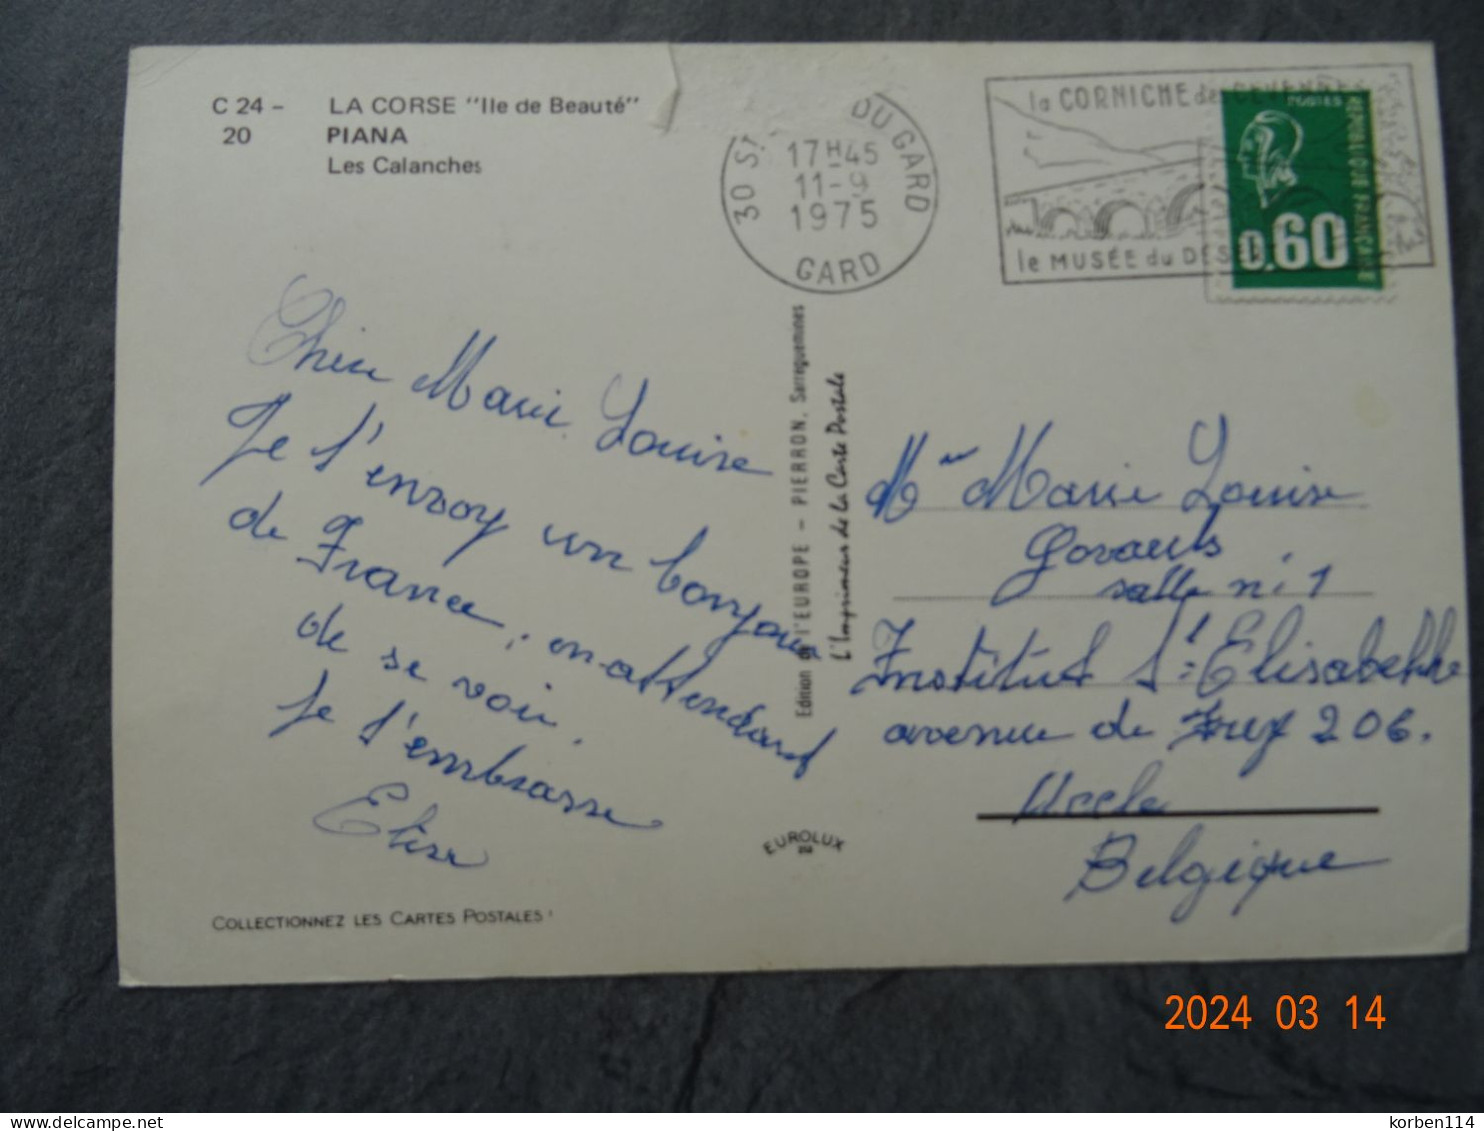 C 24 - LA CORSE "Ile de Beauté"
20 PIANA
Les Calanches
30 ST DU GARD
17H45
11-9
1975
GARD
la CORNICHE des CEVENNES
le MUSÉE du DESERT
POSTES
REPUBLIQUE FRANÇAISE
0.60
Chère Marie Louise
Je t'envoy un bonjour
de France, en attendant
de se voir.
Je t'embrasse
Elise
Edition de l'EUROPE - PIERRON, Sarreguemines
L'Imprimeur de la Carte Postale
EUROLUX
Marie Louise
Govaerts
salle n: 1
Institut St Elisabethe
avenue de 206.
Uccle
Belgique
COLLECTIONNEZ LES CARTES POSTALES !
2024 03 14
korben114